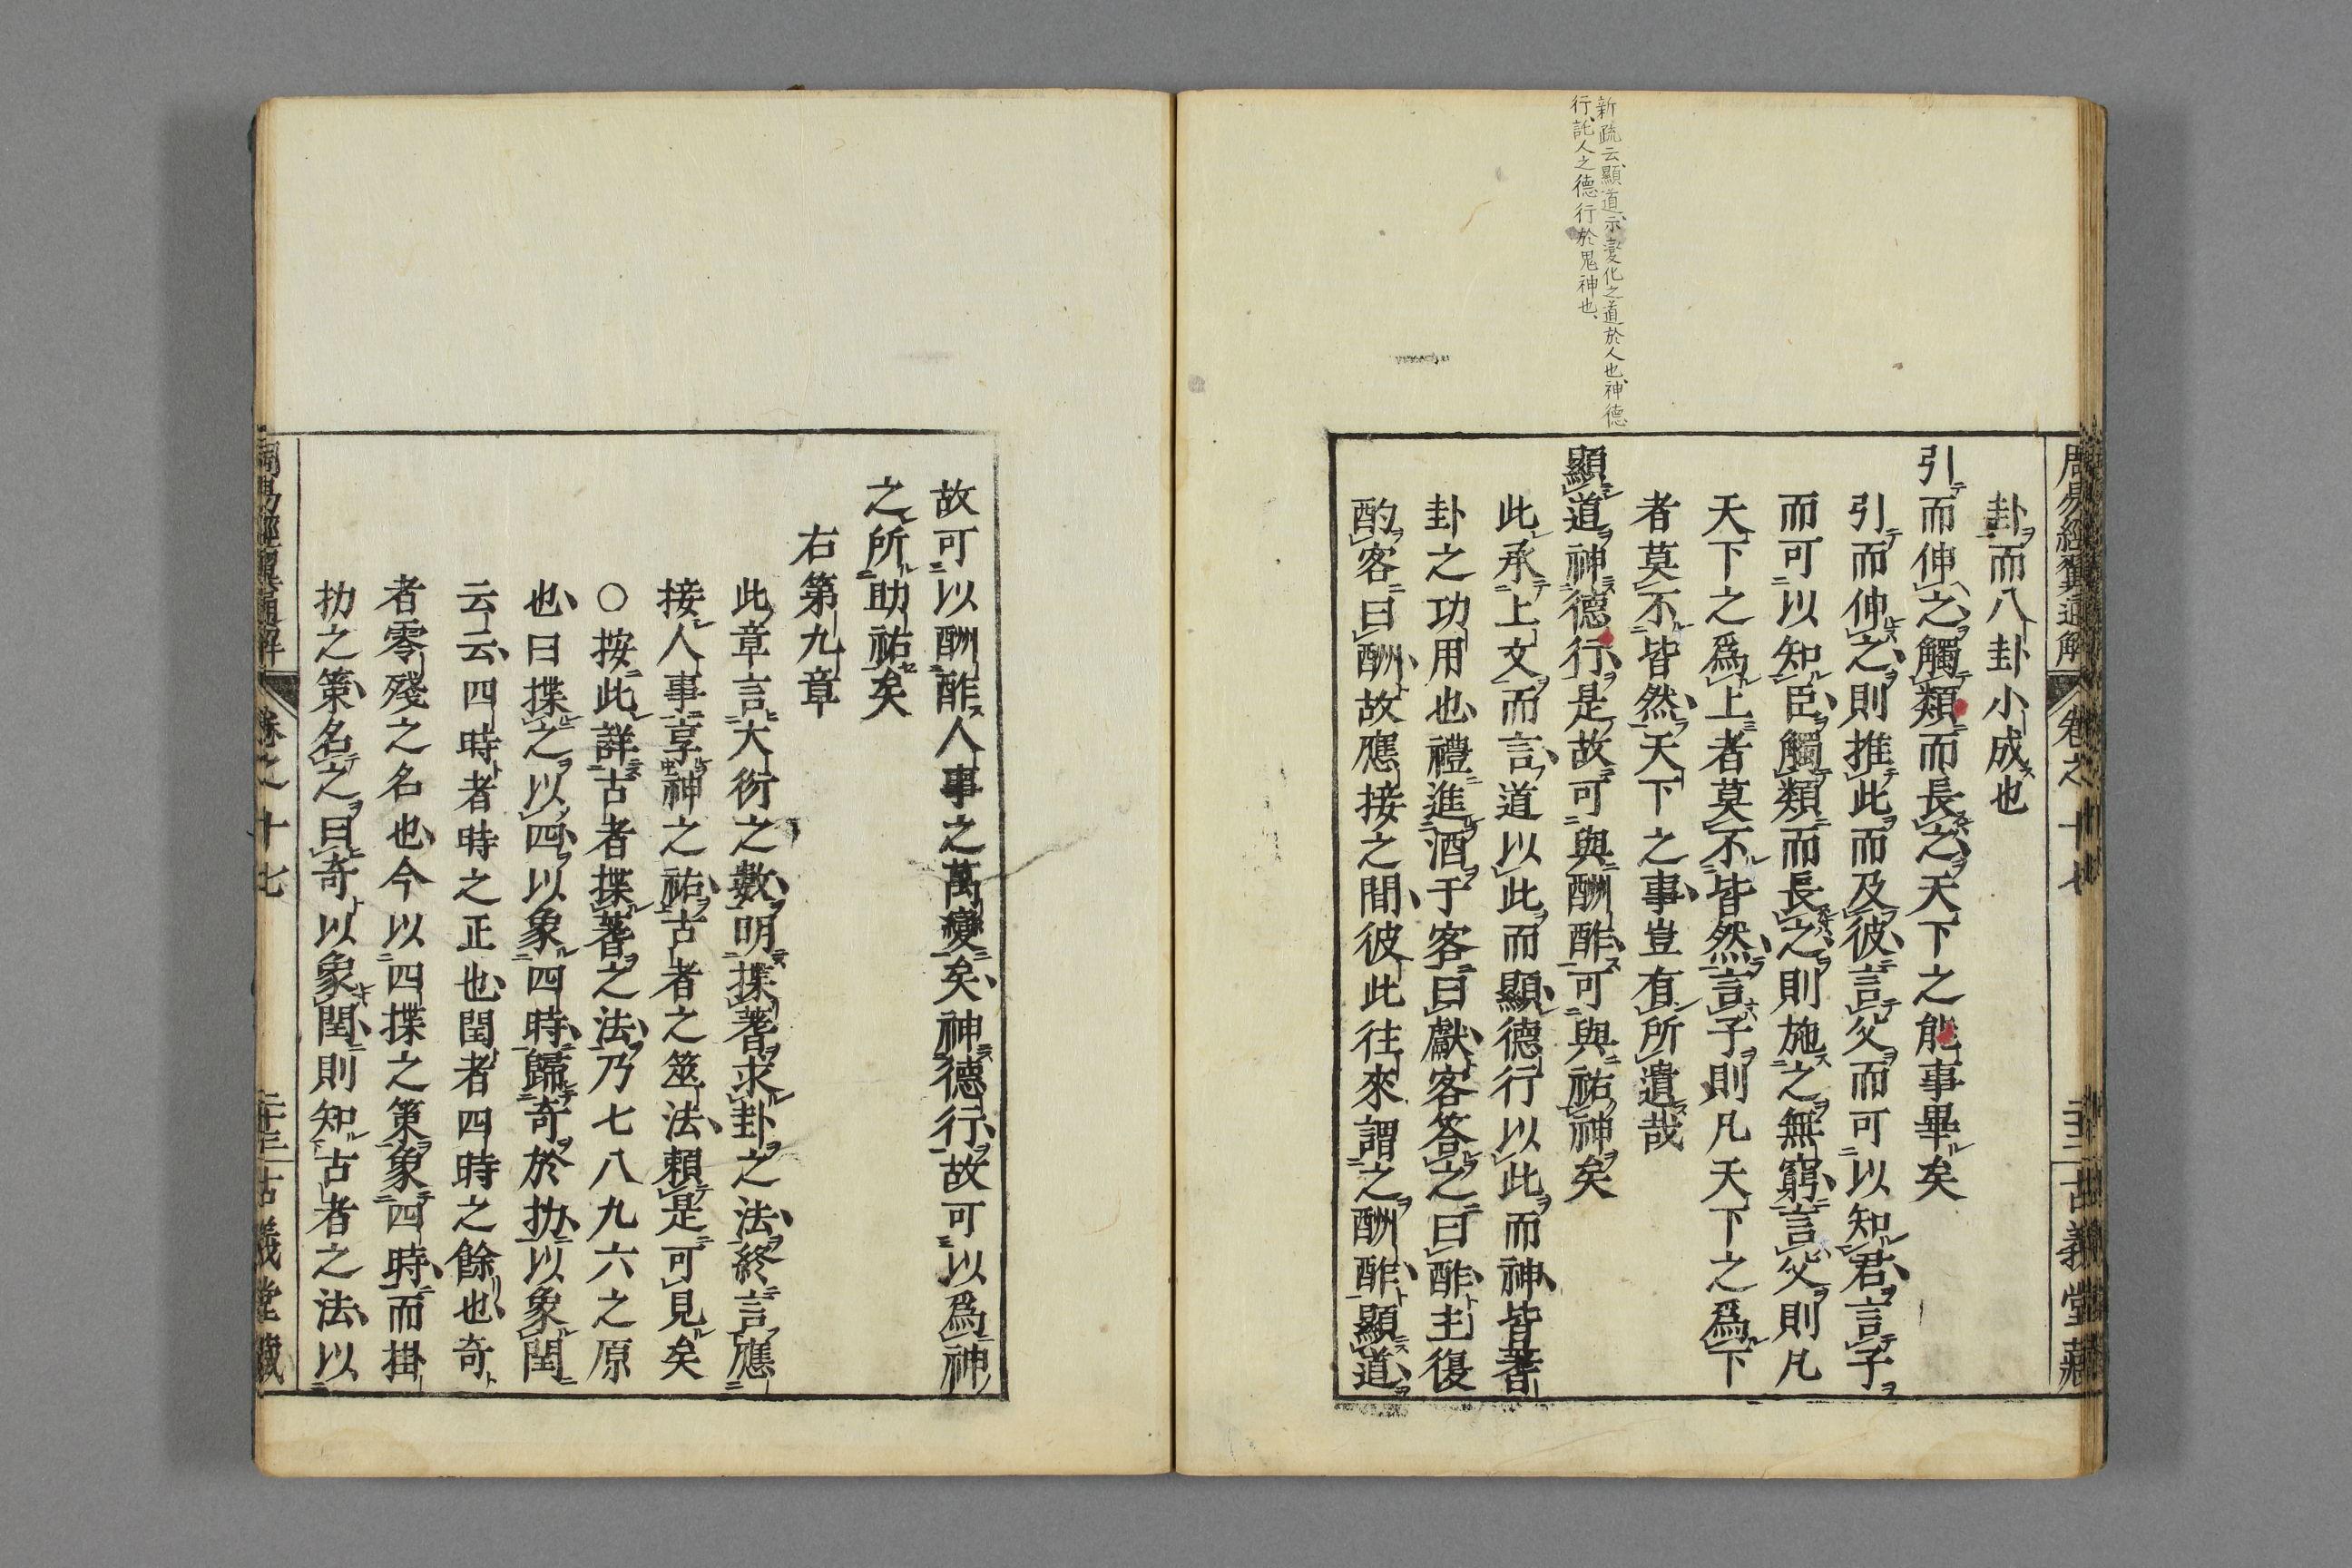 新疏云、顯道、示變化之道於人也、神德
行、託人之德行於鬼神也、
周易經翼通解 卷之十七 古義堂藏
卦而八卦小成也
引而伸之觸類而長之天下之能事畢矣
引而伸之則推此而及彼言父而可以知君言子
而可以知臣觸類而長之則施之無窮言父則凡
天下之爲上者莫不皆然言子則凡天下之爲下
者莫不皆然天下之事豈有所遺哉
顯道神德行是故可與酬酢可與祐神矣
此承上文而言道以此而顯德行以此而神皆蓍
卦之功用也禮進酒于客曰獻客答之曰酢主復
酌客曰酬故應接之間彼此往來謂之酬酢顯道
故可以酬酢人事之萬變矣神德行故可以爲神
之所助祐矣
右第九章
此章言大衍之數明揲蓍求卦之法終言應
接人事享神之祐古者之筮法賴是可見矣
○按此詳古者揲蓍之法乃七八九六之原
也曰揲之以四以象四時歸奇於扐以象閏
云云四時者時之正也閏者四時之餘也奇
者零殘之名也今以四揲之策象四時而掛
扐之策名之曰奇以象閏則知古者之法以
周易經翼通解 卷之十七 古義堂藏